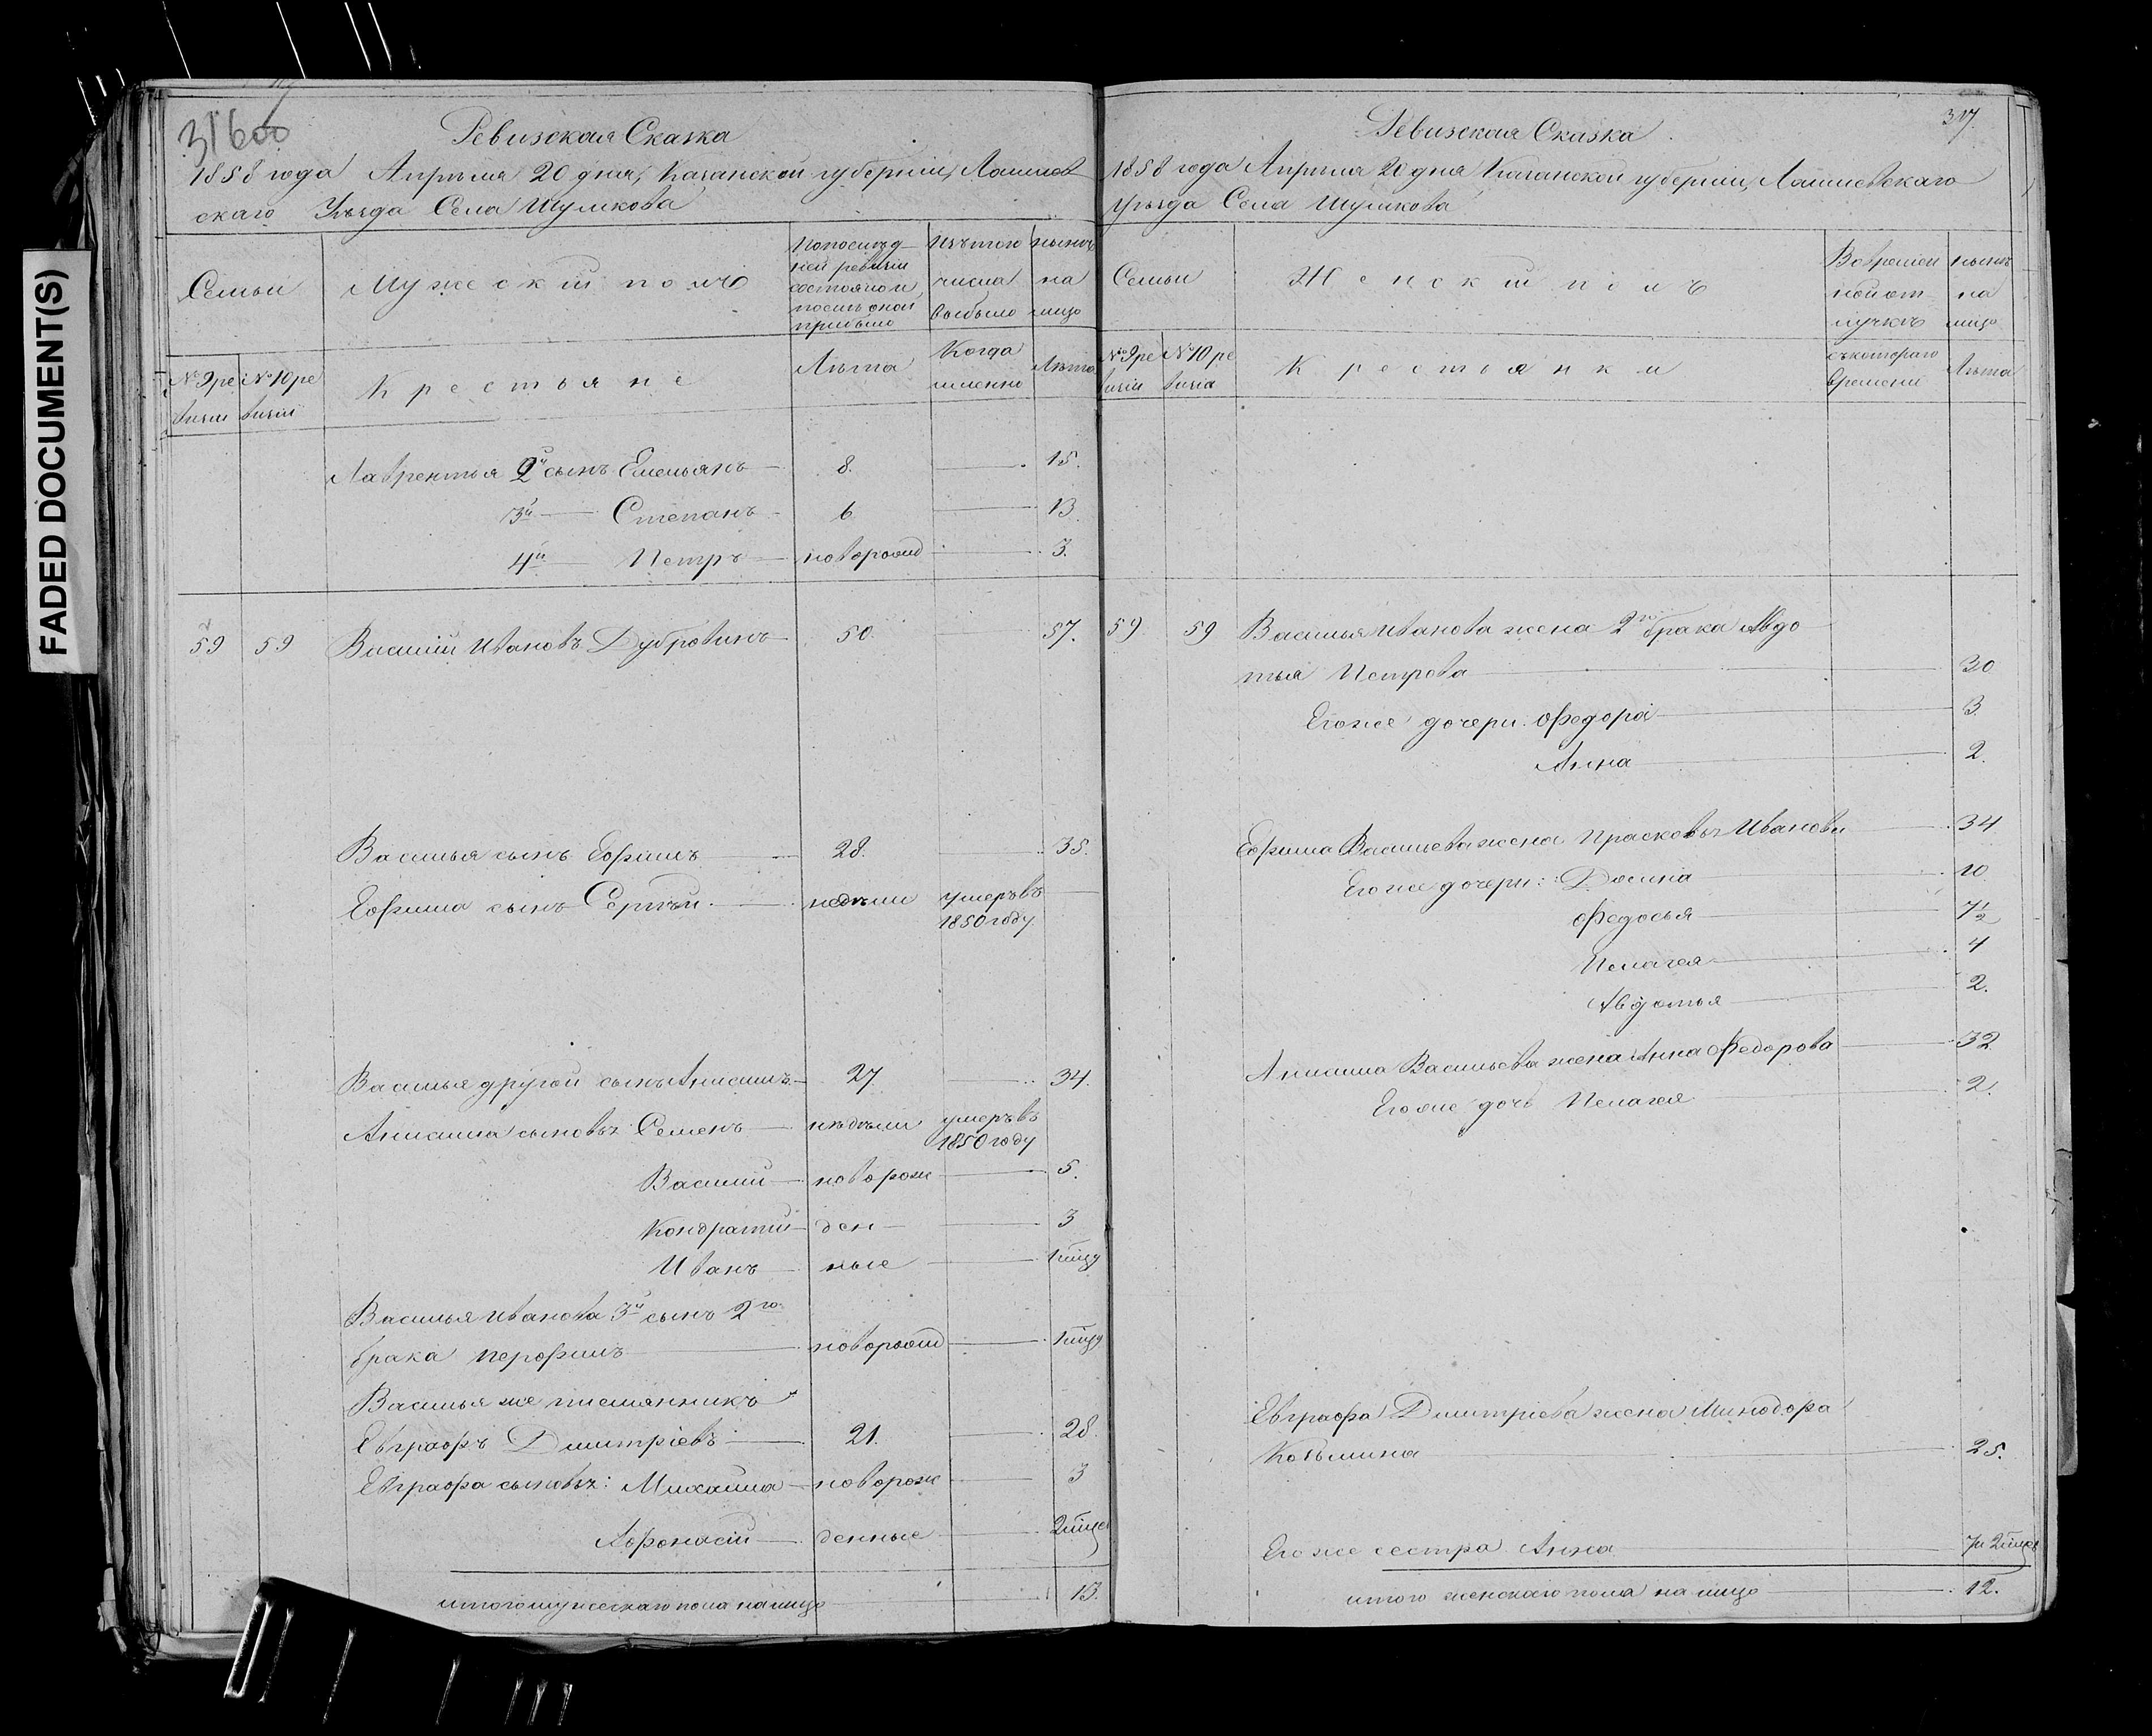 FADED DOCUMENT(S)
31600
Ревизская Сказка
1858 года Апрѣля 20 дня, Казанской губерніи, Лаишев
скаго Уѣзда Села Шумкова
Семьи
Мужескій полъ
По послѣд
ней ревизіи
состояло и
послѣ оной
прибыло
Изъ того
числа
выбыло
нынѣ
на
лицо
№ 9 ре
визіи
№ 10 ре
визіи
Крестьяне
Лѣта
Когда
именно
Лѣта
Лаврентья 2й сынъ Емельянъ 8. 15.
3й Степанъ 6 13
4й Петръ новорожд 3.
59 59 Василій Ивановъ Дубровинъ 50. 57.
Василья сынъ Ефимъ 28. 35.
Ефима сынъ Сергѣй недѣли умеръ въ
1850 году
Василья другой сынъ Анисимъ 27 34.
Анисима сыновья Семенъ недѣли умеръ въ
1850 году
Василій новорож 5.
Кондратій ден 3
Иванъ ные
Василья Иванова 3й сынъ 2го
брака Перфилъ новорожд
Василья же племянникъ
Евграфъ Дмитріевъ 21. 28.
Евграфа сыновья: Михаила новорож 3
Афонасій денные
итого мужескаго пола на лицо 13.
317.
Ревизская Сказка
1858 года Апрѣля 20 дня Казанской губерніи, Лаишевскаго
Уѣзда Села Шумкова
Семьи
Женскій полъ
Во времен
ной от
лучкѣ
нынѣ
на
лицо
№ 9 ре
визіи
№ 10 ре
визіи
Крестьянки
съ котораго
времени
Лѣта
59 59 Василья Иванова жена 2го брака Авдо
тья Петрова 30
Его же дочери: Федора 3.
Анна 2.
Ефима Васильева жена Прасковья Иванова 34
Его же дочери: 10.
Федосья 7½
Пелагея 4
Авдотья 2.
Анисима Васильева жена Анна Федорова 32
Его же дочь Пелагея 2.
Евграфа Дмитріева жена Минодора
Козьмина 25.
Его же сестра Анна
итого женскаго пола на лицо 12.